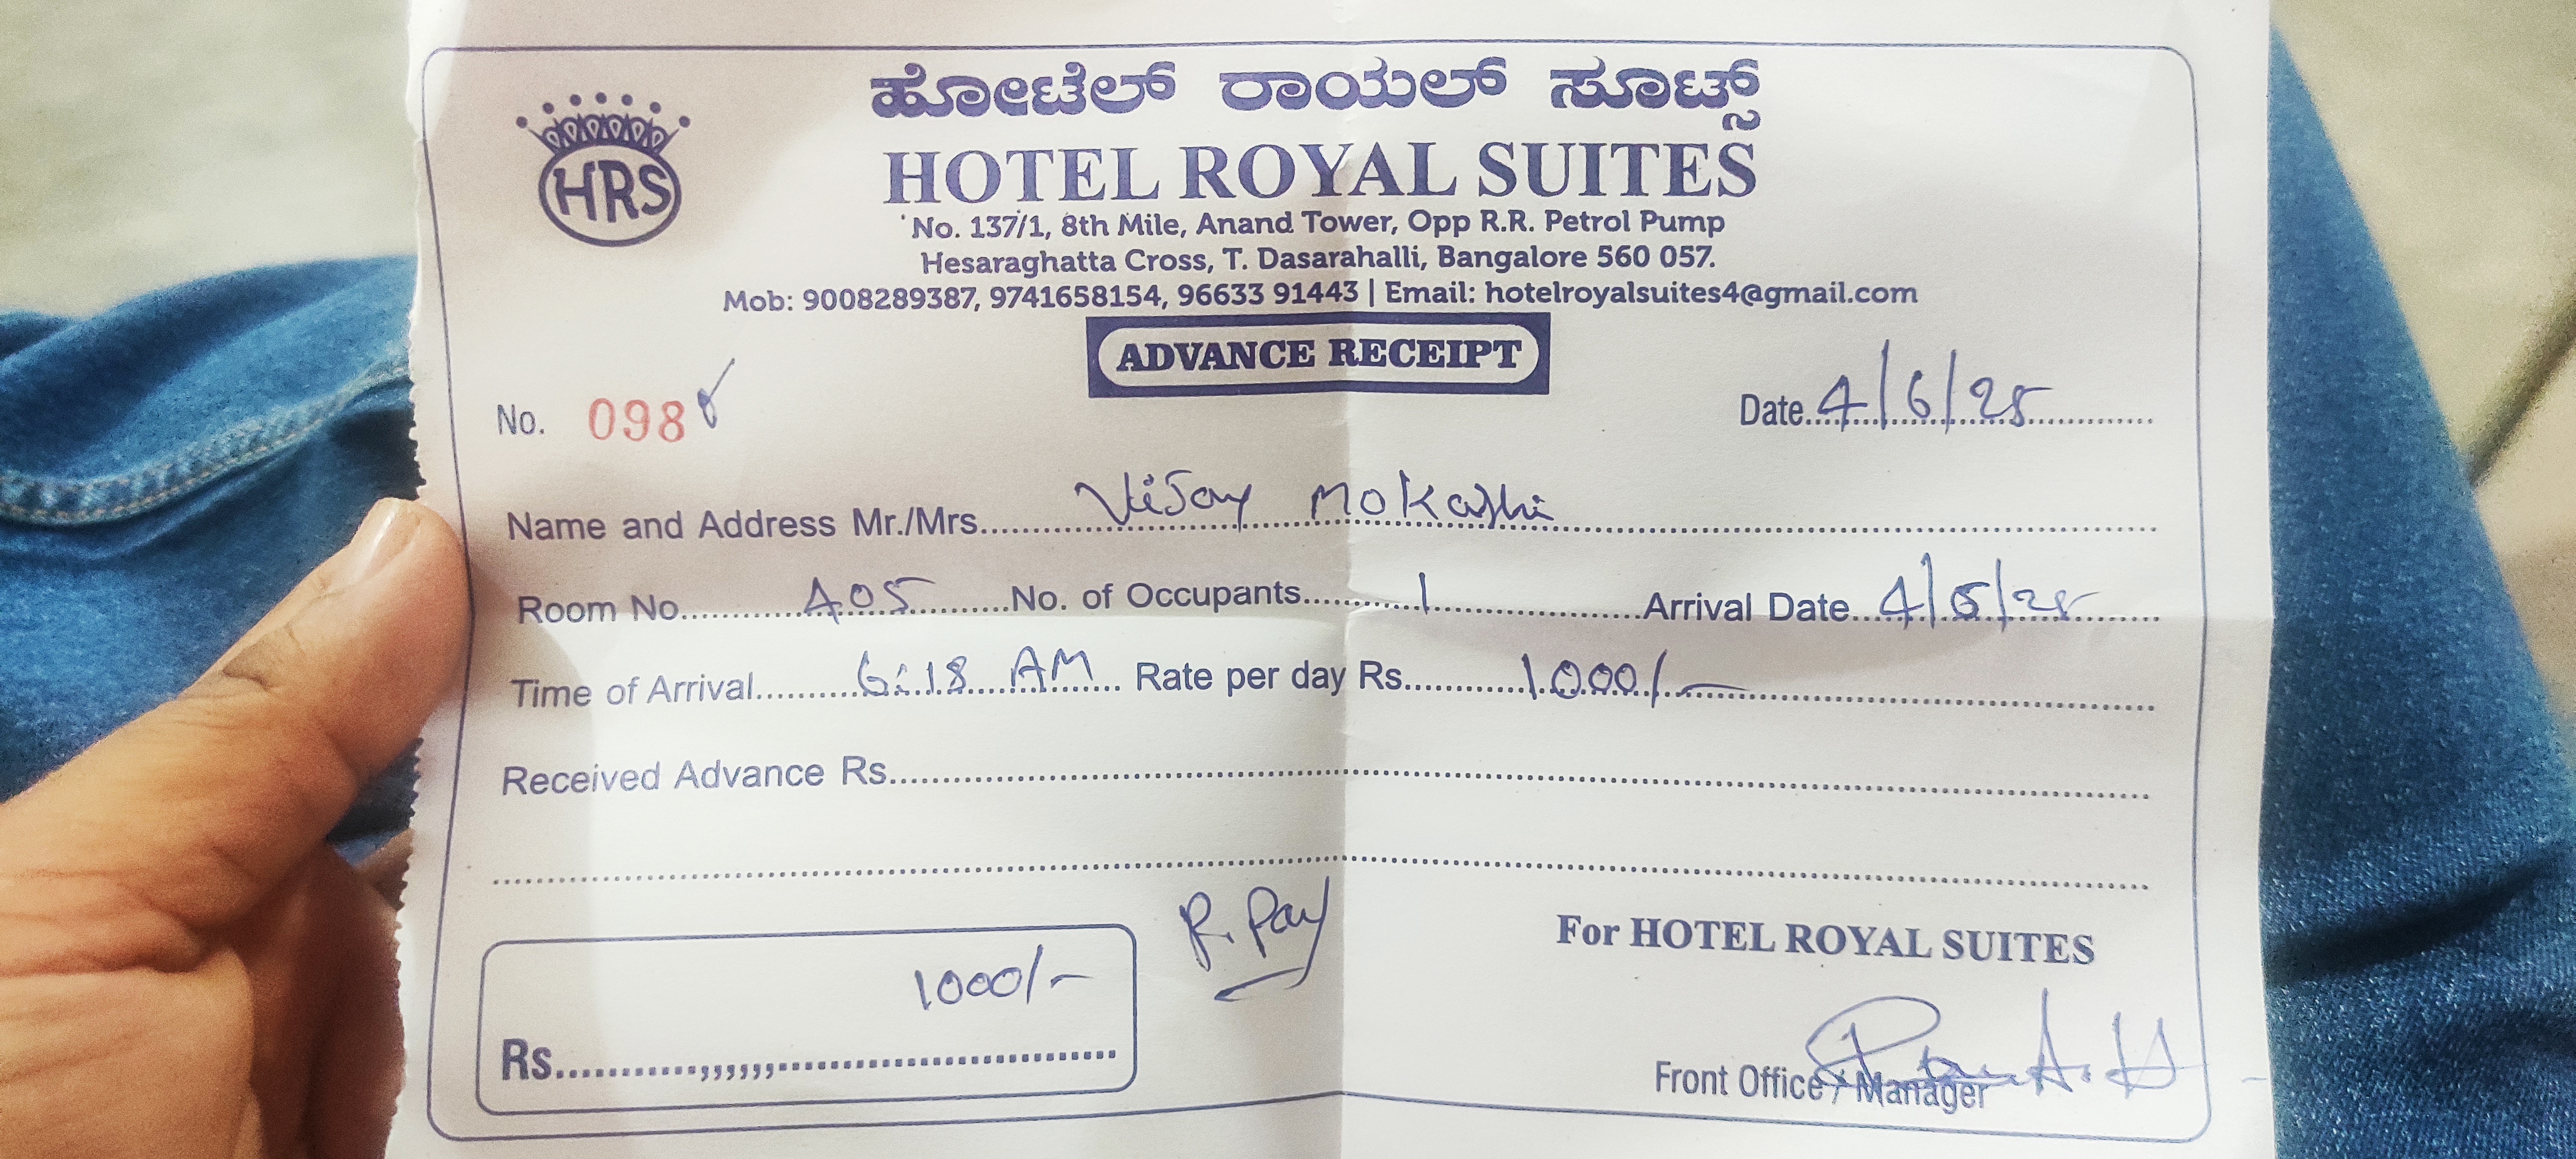 ಹೋಟೆಲ್ ರಾಯಲ್ ಸೂಟ್ಸ್
HRS
HOTEL ROYAL SUITES
No. 137/1, 8th Mile, Anand Tower, Opp R.R. Petrol Pump
Hesaraghatta Cross, T. Dasarahalli, Bangalore 560 057.
Mob: 9008289387, 9741658154, 96633 91443 | Email: hotelroyalsuites4@gmail.com
ADVANCE RECEIPT
No. 098 Date 4/6/25
Name and Address Mr./Mrs. Vijay Mokashi
Room No. 405 No. of Occupants 1 Arrival Date 4/6/25
Time of Arrival 6:18 AM Rate per day Rs. 1000/-
Received Advance Rs.
P. Pay
For HOTEL ROYAL SUITES
1000/-
Rs.
Front Office / Manager